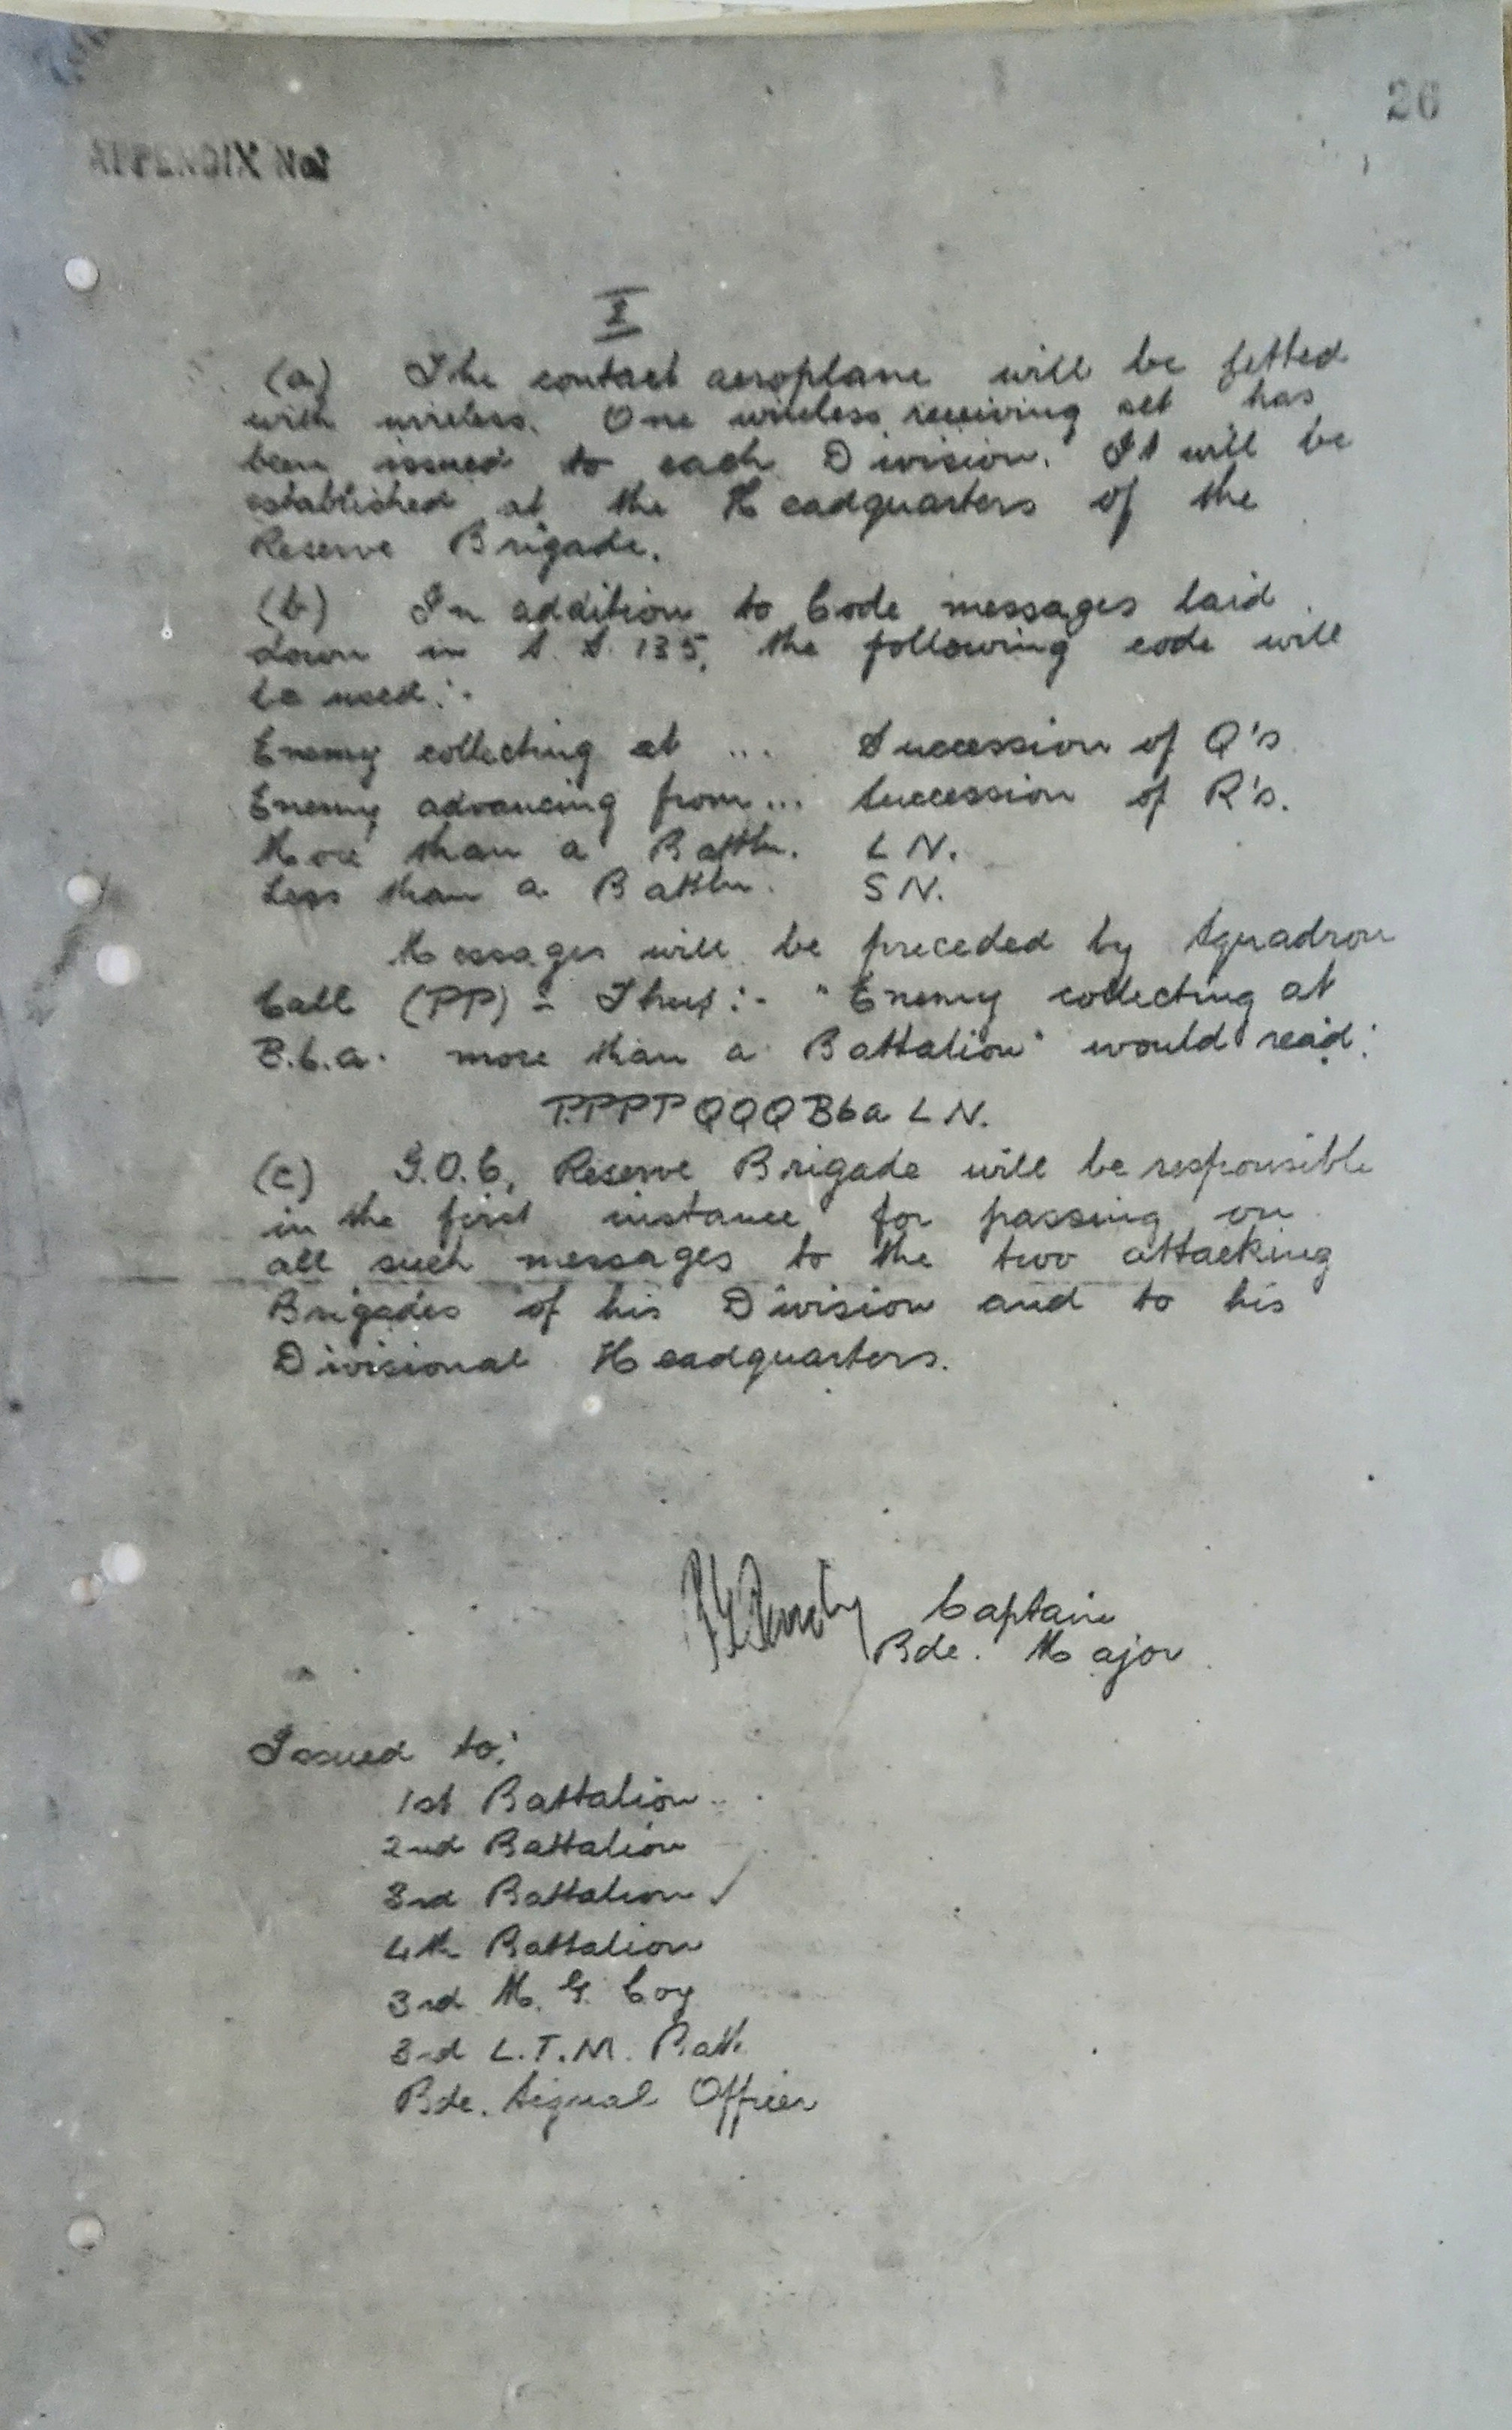 26
APPENDIX No
I
(a) The contact aeroplane will be fitted
with wireless. One wireless receiving set has
been issued to each Division. It will be
established at the Headquarters of the
Reserve Brigade.
(b) In addition to Code messages laid
down in S.S. 135, the following code will
be used:-
Enemy collecting at ... Succession of Q's
Enemy advancing from... Succession of R's.
More than a Battln. L N.
Less than a Battln. S N.
Messages will be preceded by Squadron
Call (PP) - Thus:- "Enemy collecting at
B.6.a. more than a Battalion" would read:
PPPP QQQ B6a L N.
(c) G.O.C, Reserve Brigade will be responsible
in the first instance for passing on
all such messages to the two attacking
Brigades of his Division and to his
Divisional Headquarters.
Captain
Bde. Major
Issued to:
1st Battalion
2nd Battalion
3rd Battalion ✓
4th Battalion
3rd M. G. Coy
3rd L.T.M. Batt.
Bde. Signal Officer